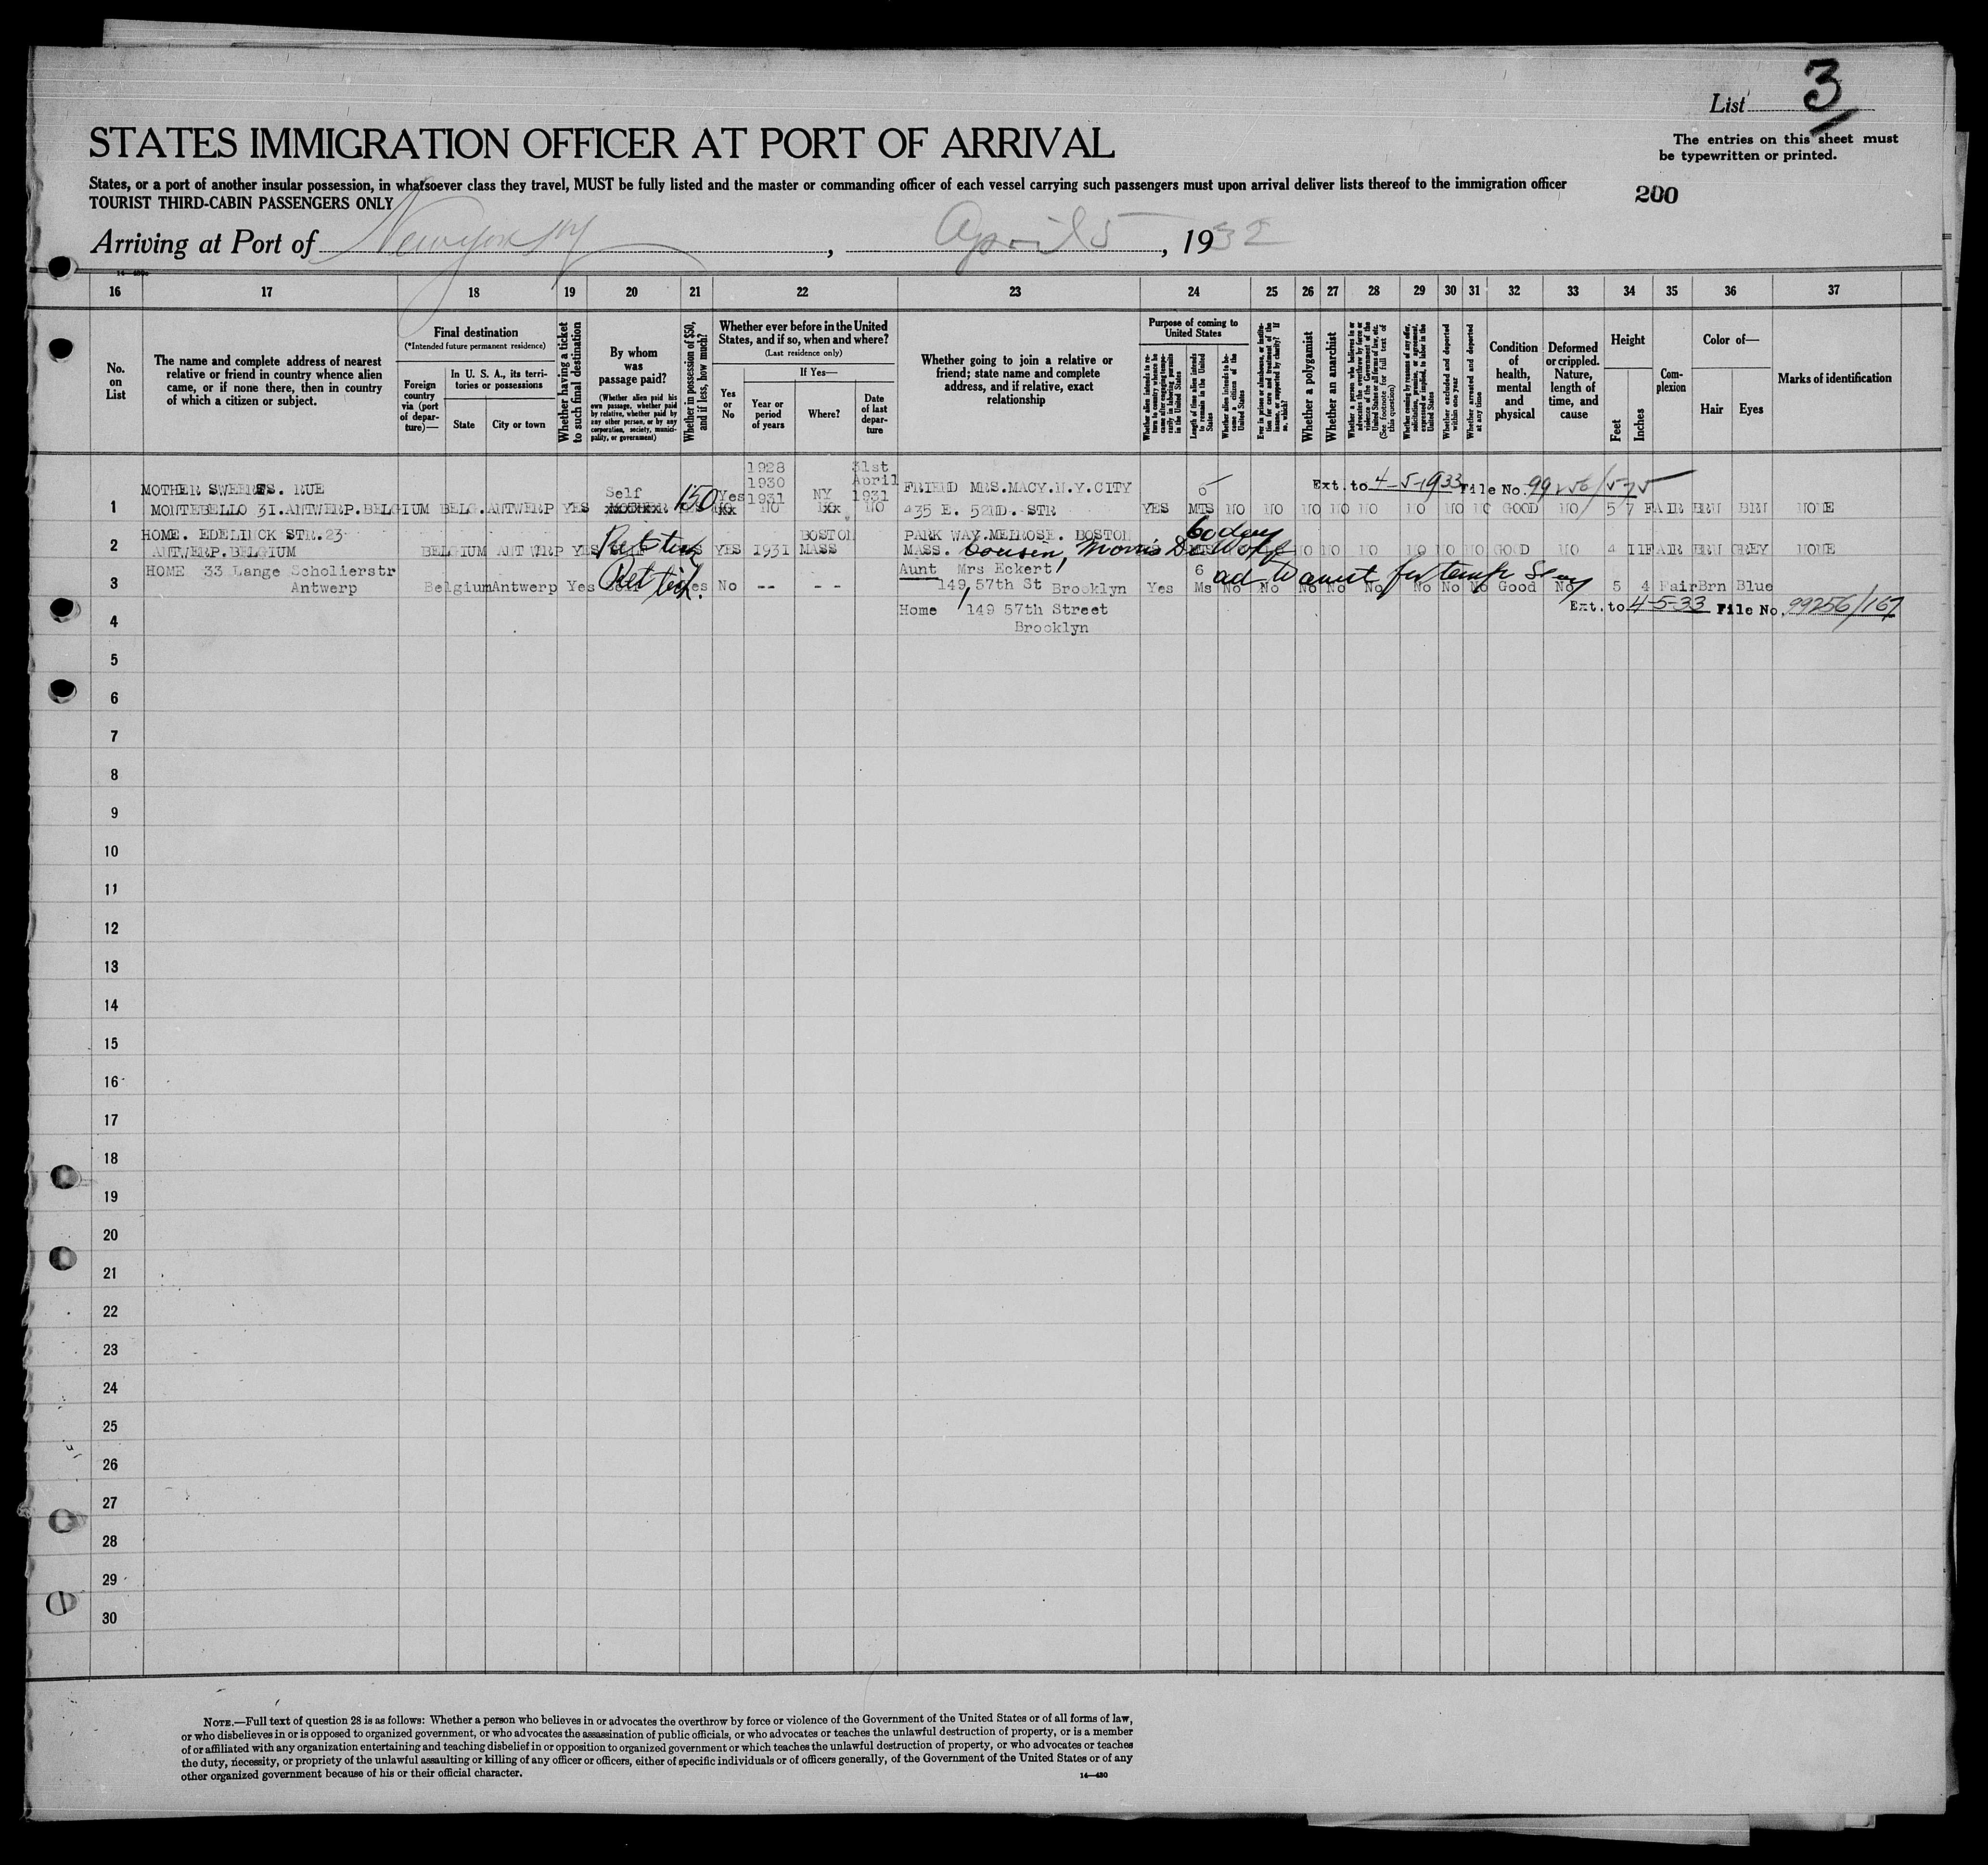 List 3
STATES IMMIGRATION OFFICER AT PORT OF ARRIVAL
The entries on this sheet must
be typewritten or printed.
States, or a port of another insular possession, in whatsoever class they travel, MUST be fully listed and the master or commanding officer of each vessel carrying such passengers must upon arrival deliver lists thereof to the immigration officer
TOURIST THIRD-CABIN PASSENGERS ONLY
200
Arriving at Port of New York NY, April 5, 1932
16 17 18 19 20 21 22 23 24 25 26 27 28 29 30 31 32 33 34 35 36 37
No. on List
The name and complete address of nearest relative or friend in country whence alien came, or if none there, then in country of which a citizen or subject.
Final destination
(*Intended future permanent residence)
Foreign country via (port of departure)—
In U. S. A., its territories or possessions
State
City or town
Whether having a ticket to such final destination
By whom was passage paid?
(Whether alien paid his own passage, whether paid by relative, whether paid by any other person, or by any corporation, society, municipality, or government)
Whether in possession of $50, and if less, how much?
Whether ever before in the United States, and if so, when and where?
(Last residence only)
Yes or No
If Yes—
Year or period of years
Where?
Date of last departure
Whether going to join a relative or friend; state name and complete address, and if relative, exact relationship
Purpose of coming to United States
Whether alien intends to return to country whence he came after engaging temporarily in laboring pursuits in the United States
Length of time alien intends to remain in the United States
Whether alien intends to become a citizen of the United States
Ever in prison or almshouse, or institution for care and treatment of the insane, or supported by charity? If so, which?
Whether a polygamist
Whether an anarchist
Whether a person who believes in or advocates the overthrow by force or violence of the Government of the United States or all forms of law, etc. (See footnote for full text of this question)
Whether coming by reasons of any offer, solicitation, promise, or agreement, expressed or implied, to labor in the United States
Whether excluded and deported within one year
Whether arrested and deported at any time
Condition of health, mental and physical
Deformed or crippled. Nature, length of time, and cause
Height
Feet
Inches
Complexion
Color of—
Hair
Eyes
Marks of identification
1928 31st
1930 April
MOTHER SWEERTS. RUE Self 150 Yes 1931 NY 1931 FRIEND MRS.MACY.N.Y.CITY 6 Ext. to 4-5-1933 File No. 99256/575
1 MONTEBELLO 31.ANTWERP.BELGIUM BELG. ANTWERP YES NO NO 435 E. 52ND. STR YES MTS NO NO NO NO NO NO NO NO GOOD NO 5 7 FAIR BRN BRN NONE
HOME. EDELINCK STR.23 BOSTON PARK WAY.MELROSE. BOSTON 60 days
2 ANTWERP.BELGIUM BELGIUM ANTWERP YES SELF YES 1931 MASS MASS. Cousin, Morris De Wolff NO NO NO NO NO NO GOOD NO 4 11 FAIR BRN GREY NONE
HOME 33 Lange Scholierstr Ret tick. Aunt Mrs Eckert 6 ad to aunt for temp stay
3 Antwerp Belgium Antwerp Yes Self Yes No -- -- 149 57th St Brooklyn Yes Ms No No No No No No No No Good No 5 4 Fair Brn Blue
Home 149 57th Street Ext. to 4-5-33 File No. 99256/167
4 Brooklyn
5
6
7
8
9
10
11
12
13
14
15
16
17
18
19
20
21
22
23
24
25
26
27
28
29
30
NOTE.—Full text of question 28 is as follows: Whether a person who believes in or advocates the overthrow by force or violence of the Government of the United States or of all forms of law,
or who disbelieves in or is opposed to organized government, or who advocates the assassination of public officials, or who advocates or teaches the unlawful destruction of property, or is a member
of or affiliated with any organization entertaining and teaching disbelief in or opposition to organized government or which teaches the unlawful destruction of property, or who advocates or teaches
the duty, necessity, or propriety of the unlawful assaulting or killing of any officer or officers, either of specific individuals or of officers generally, of the Government of the United States or of any
other organized government because of his or their official character.
14—480